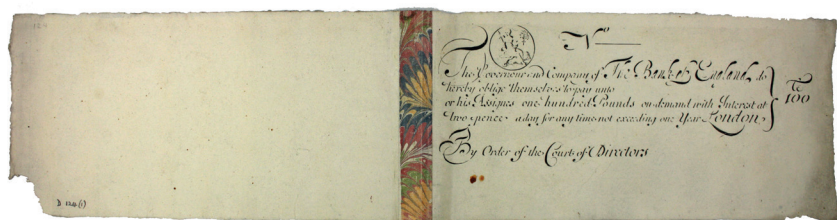 No
The Governour and Company of The Bank of England do
hereby oblige themselves to pay unto
or his Assignes one hundred Pounds on demand with Interest at
Two pence a day for any time not exceeding one Year London
£
100
By Order of the Court of Directors
D 124 (1)